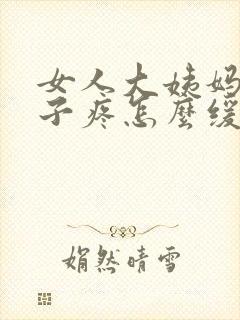 女人大姨妈
子疼怎麼缓
娟然晴雪